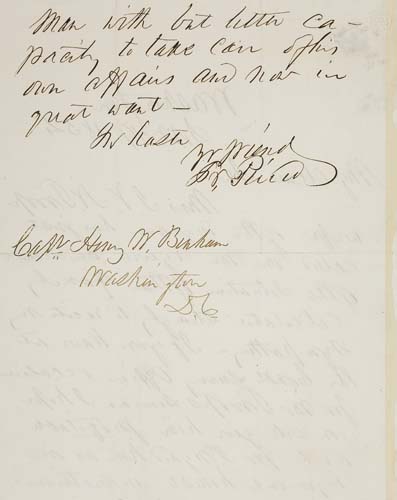 Man with but little ca-
pacity to take care of his
own affairs and now in
great want —
In haste
yr friend
Capn. Henry W. Benham
Washington
D.C.